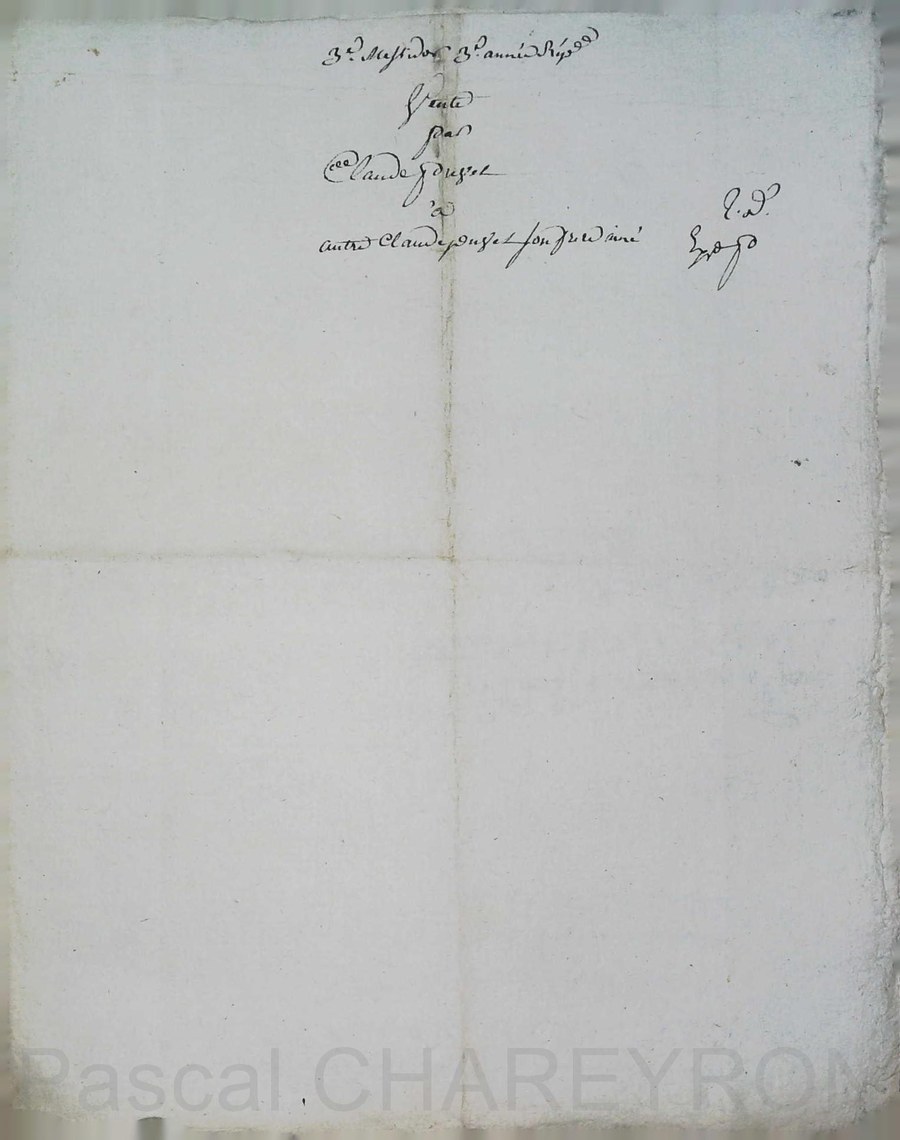 3e. Messidor 3e. année Rép
Vente
par
Claude pouzet
à
autre Claude pouzet son frere ainé
Pascal CHAREYRON